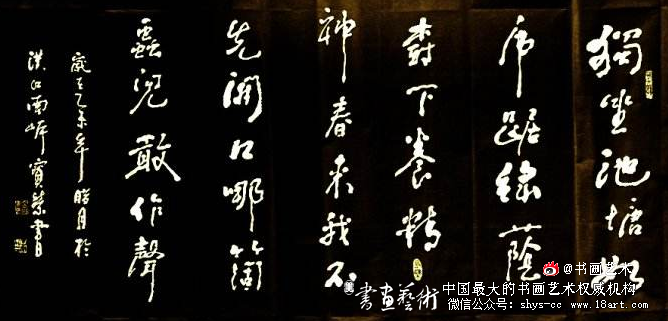 獨坐池塘如
虎踞綠蔭
樹下養精
神春來我不
先開口哪箇
蟲兒敢作聲
歲在乙未年腊月於
江南岸寶榮書
@书画艺术
書畫藝術
中国最大的书画艺术权威机构
微信公众号: shys-cc www.18art.com